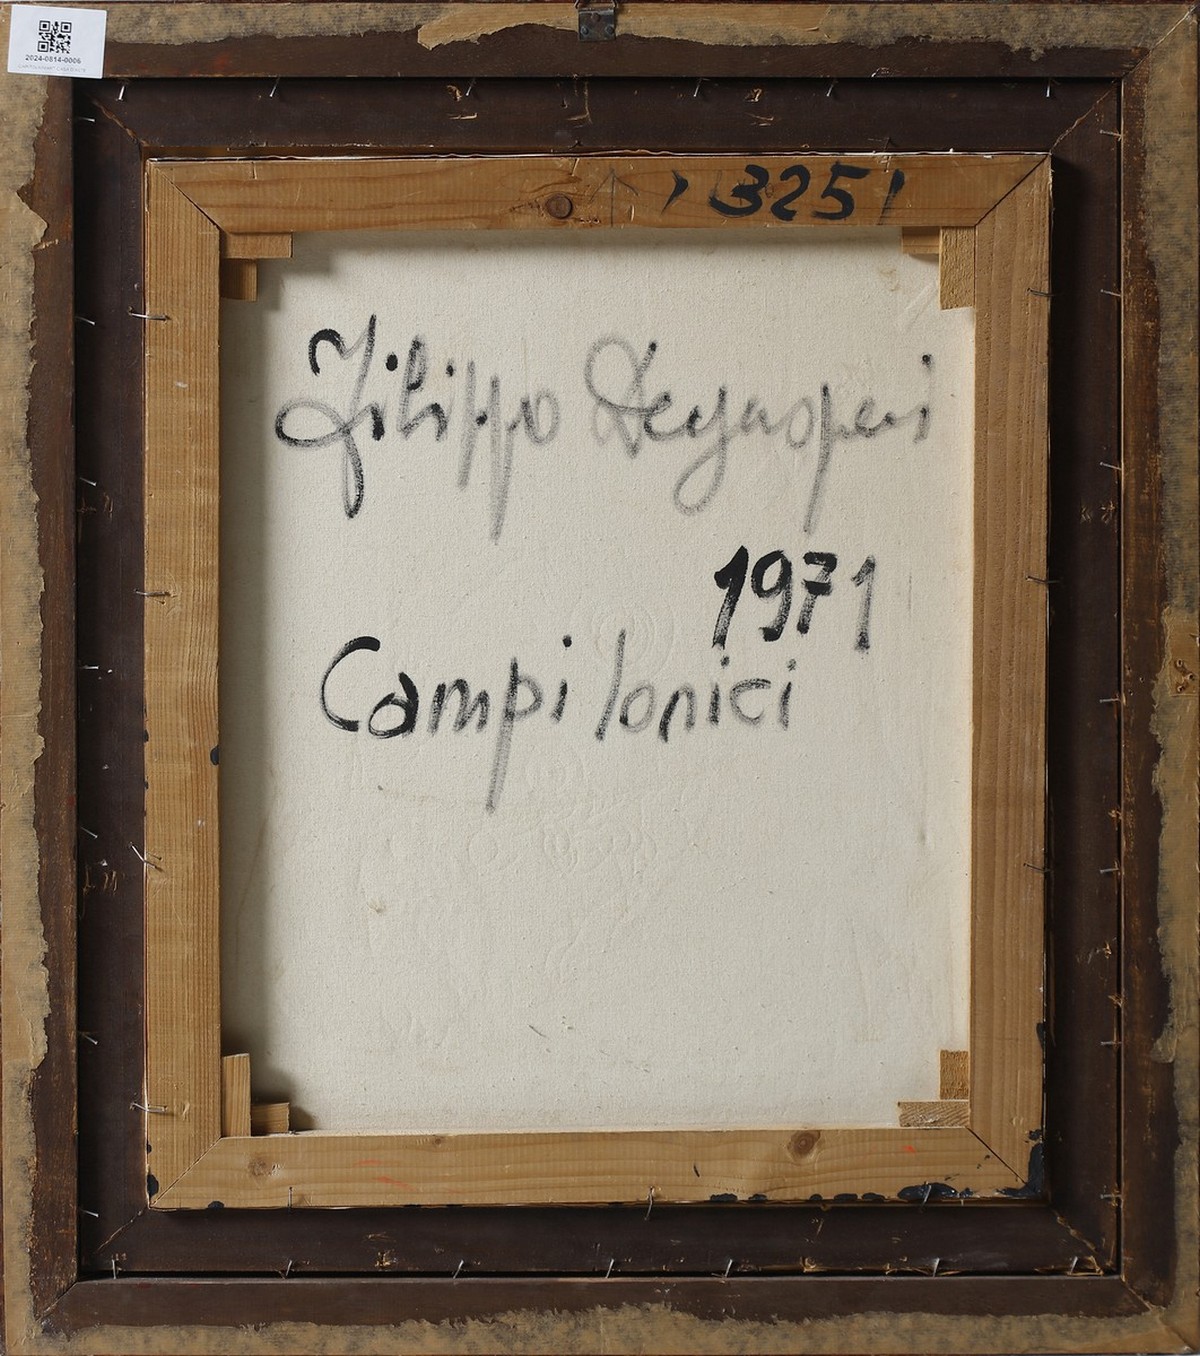 2024-0814-0006
3251
Filippo Degasperi
1971
Campi Ionici